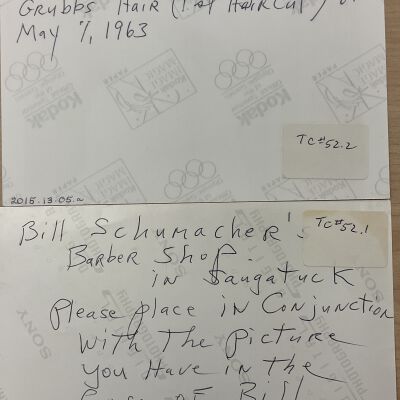 Grubbs Hair (1st Haircut)
May 7, 1963
TC#52.2
2015.13.05.a
Bill Schumacher's
TC#52.1
Barber Shop.
in Saugatuck
Please place in Conjunction
With The Picture
you Have in The
OF Bill